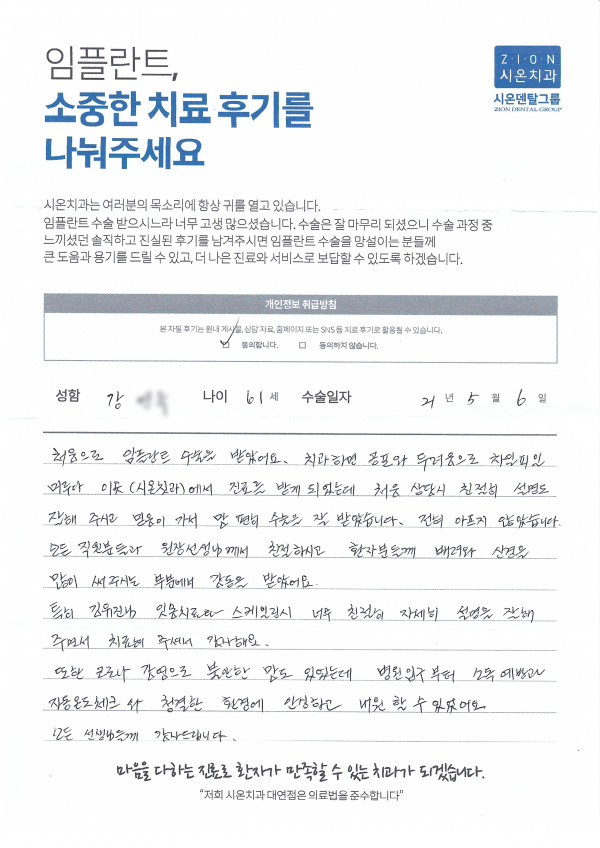 임플란트,
소중한 치료 후기를
나눠주세요
Z·I·O·N
시온치과
시온덴탈그룹
ZION DENTAL GROUP
시온치과는 여러분의 목소리에 항상 귀를 열고 있습니다.
임플란트 수술 받으시느라 너무 고생 많으셨습니다. 수술은 잘 마무리 되셨으니 수술 과정 중
느끼셨던 솔직하고 진실된 후기를 남겨주시면 임플란트 수술을 망설이는 분들께
큰 도움과 용기를 드릴 수 있고, 더 나은 진료와 서비스로 보답할 수 있도록 하겠습니다.
개인정보 취급방침
본 자필 후기는 원내 게시물, 상담 자료, 홈페이지 또는 SNS 등 치료 후기로 활용될 수 있습니다.
동의합니다. 동의하지 않습니다.
성함 강 나이 61세 수술일자 21년 5월 6일
처음으로 임플란트 수술을 받았어요. 치과하면 공포와 두려움으로 차일피일
미루다 이곳(시온치과)에서 진료를 받게 되었는데 처음 상담시 친절히 설명도
잘해 주시고 믿음이 가서 맘 편히 수술을 잘 받았습니다. 전혀 아프지 않았습니다.
모든 직원분들과 원장선생님께서 친절하시고 환자분들께 배려와 신경을
많이 써주시는 부분에서 감동을 받았어요.
특히 김유진님 잇몸치료와 스케일링시 너무 친절히 자세히 설명을 잘해
주면서 치료해 주셔서 감사해요.
또한 코로나 감염으로 불안한 맘도 있었는데 병원입구부터 소독 예방과
자동온도체크와 청결한 환경에 안심하고 내원 할 수 있었어요
모든 선생님들께 감사드립니다.
마음을 다하는 진료로 환자가 만족할 수 있는 치과가 되겠습니다.
"저희 시온치과 대연점은 의료법을 준수합니다"